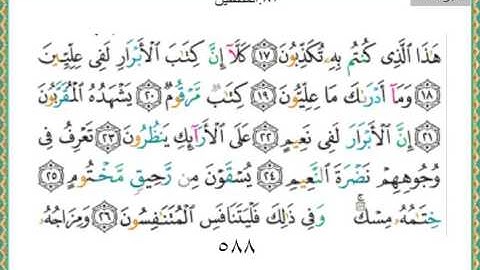 هَٰذَا ٱلَّذِى كُنتُم بِهِۦ تُكَذِّبُونَ ١٧ كَلَّآ إِنَّ كِتَٰبَ ٱلۡأَبۡرَارِ لَفِى عِلِّيِّينَ
١٨ وَمَآ أَدۡرَىٰكَ مَا عِلِّيُّونَ ١٩ كِتَٰبٞ مَّرۡقُومٞ ٢٠ يَشۡهَدُهُ ٱلۡمُقَرَّبُونَ
٢١ إِنَّ ٱلۡأَبۡرَارَ لَفِى نَعِيمٍ ٢٢ عَلَى ٱلۡأَرَآئِكِ يَنظُرُونَ ٢٣ تَعۡرِفُ فِى
وُجُوهِهِمۡ نَضۡرَةَ ٱلنَّعِيمِ ٢٤ يُسۡقَوۡنَ مِن رَّحِيقٖ مَّخۡتُومٍ ٢٥
خِتَٰمُهُۥ مِسۡكٞۚ وَفِى ذَٰلِكَ فَلۡيَتَنَافَسِ ٱلۡمُتَنَٰفِسُونَ ٢٦ وَمِزَاجُهُۥ
٥٨٨